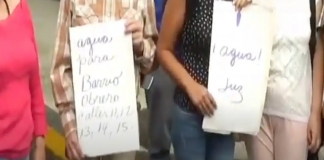 agua
para
Barrio
Obrero
calles 11, 12
13, 14, 15
¡agua!
Luz